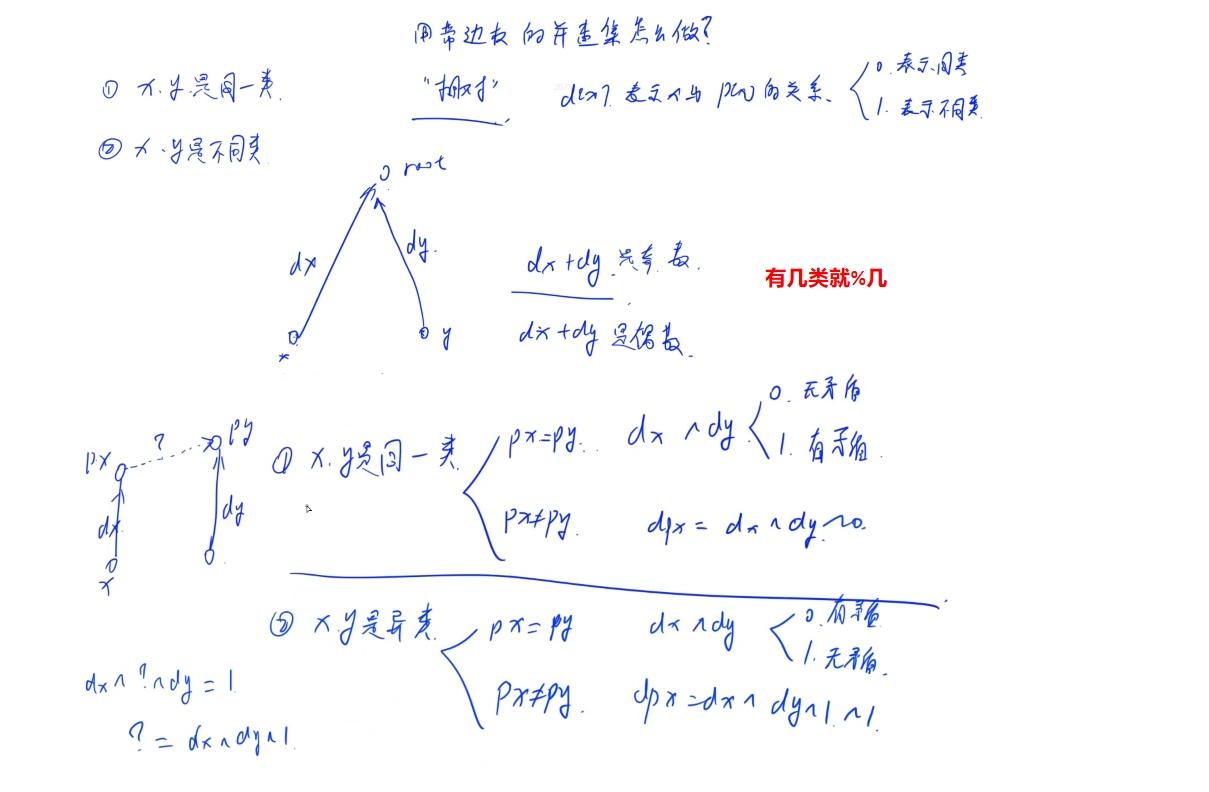 用带边权的并查集怎么做?
① x.y是同一类.
"相对"
d[x]表示x与p[x]的关系.
0.表示同类
1.表示不同类.
② x.y是不同类.
root
dx
dy.
x
y
dx+dy是奇数.
dx+dy是偶数.
有几类就%几
px
?
py
dx
dy
x
① x.y是同一类.
px=py.
dx ^ dy
0.无矛盾
1.有矛盾.
px≠py.
dpx = dx ^ dy ^ 0.
② x.y是异类.
px = py
dx ^ dy
0.有矛盾
1.无矛盾.
px≠py.
dpx = dx ^ dy ^ 1. ^ 1.
dx ^ ? ^ dy = 1
? = dx ^ dy ^ 1.